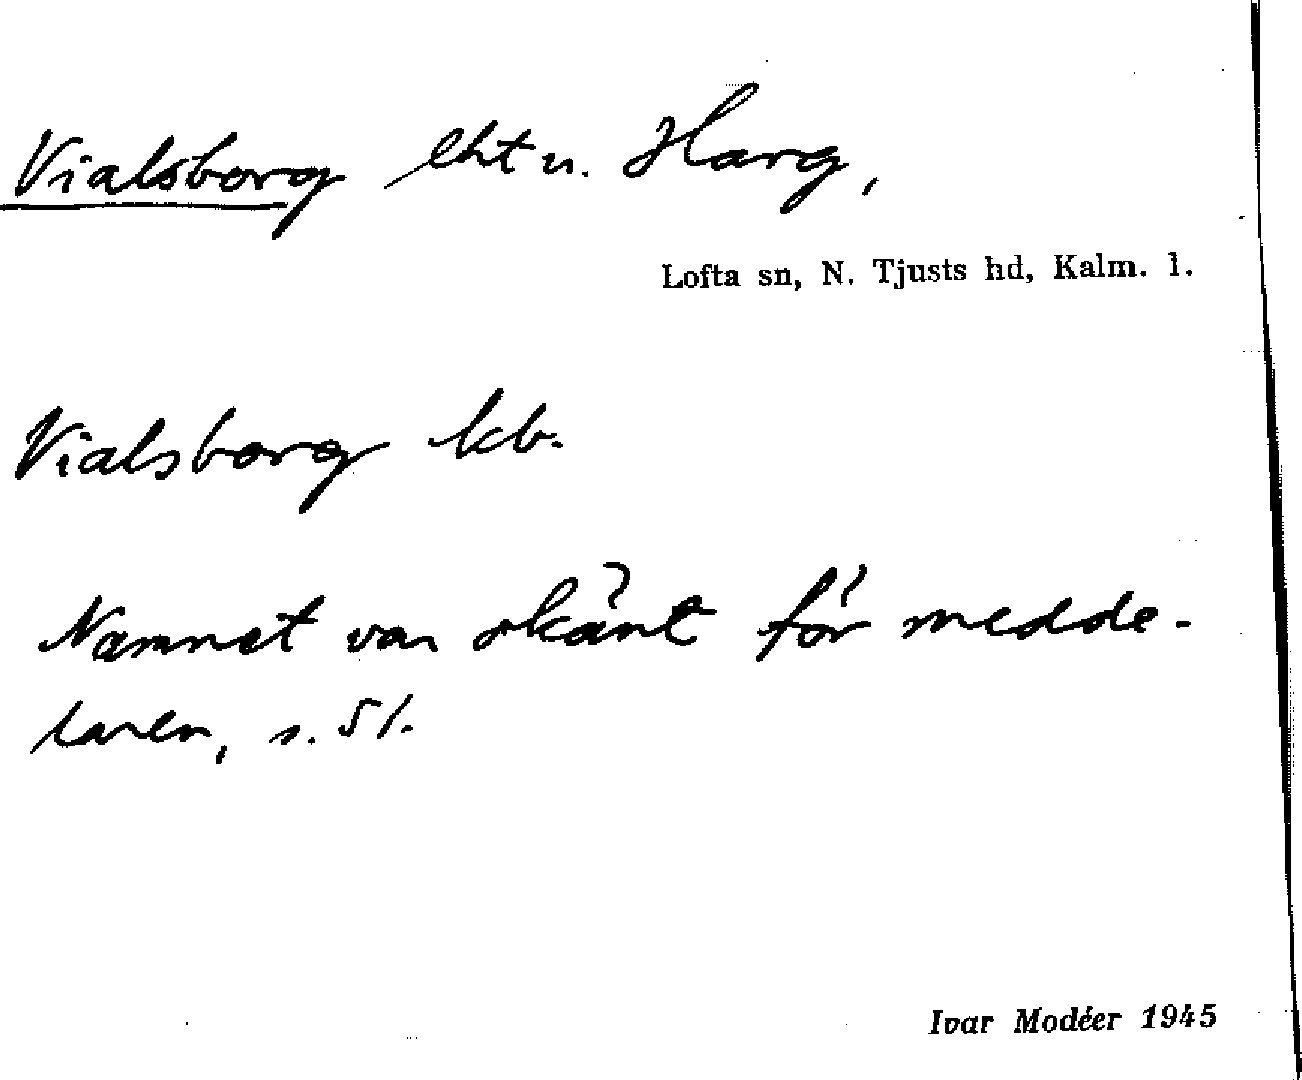 Vialsborg lht u. Harg,
Lofta sn, N. Tjusts hd, Kalm. l.
Vialsborg kb.
Namnet var okänt för medde-
laren, s. 51.
Ivar Modéer 1945